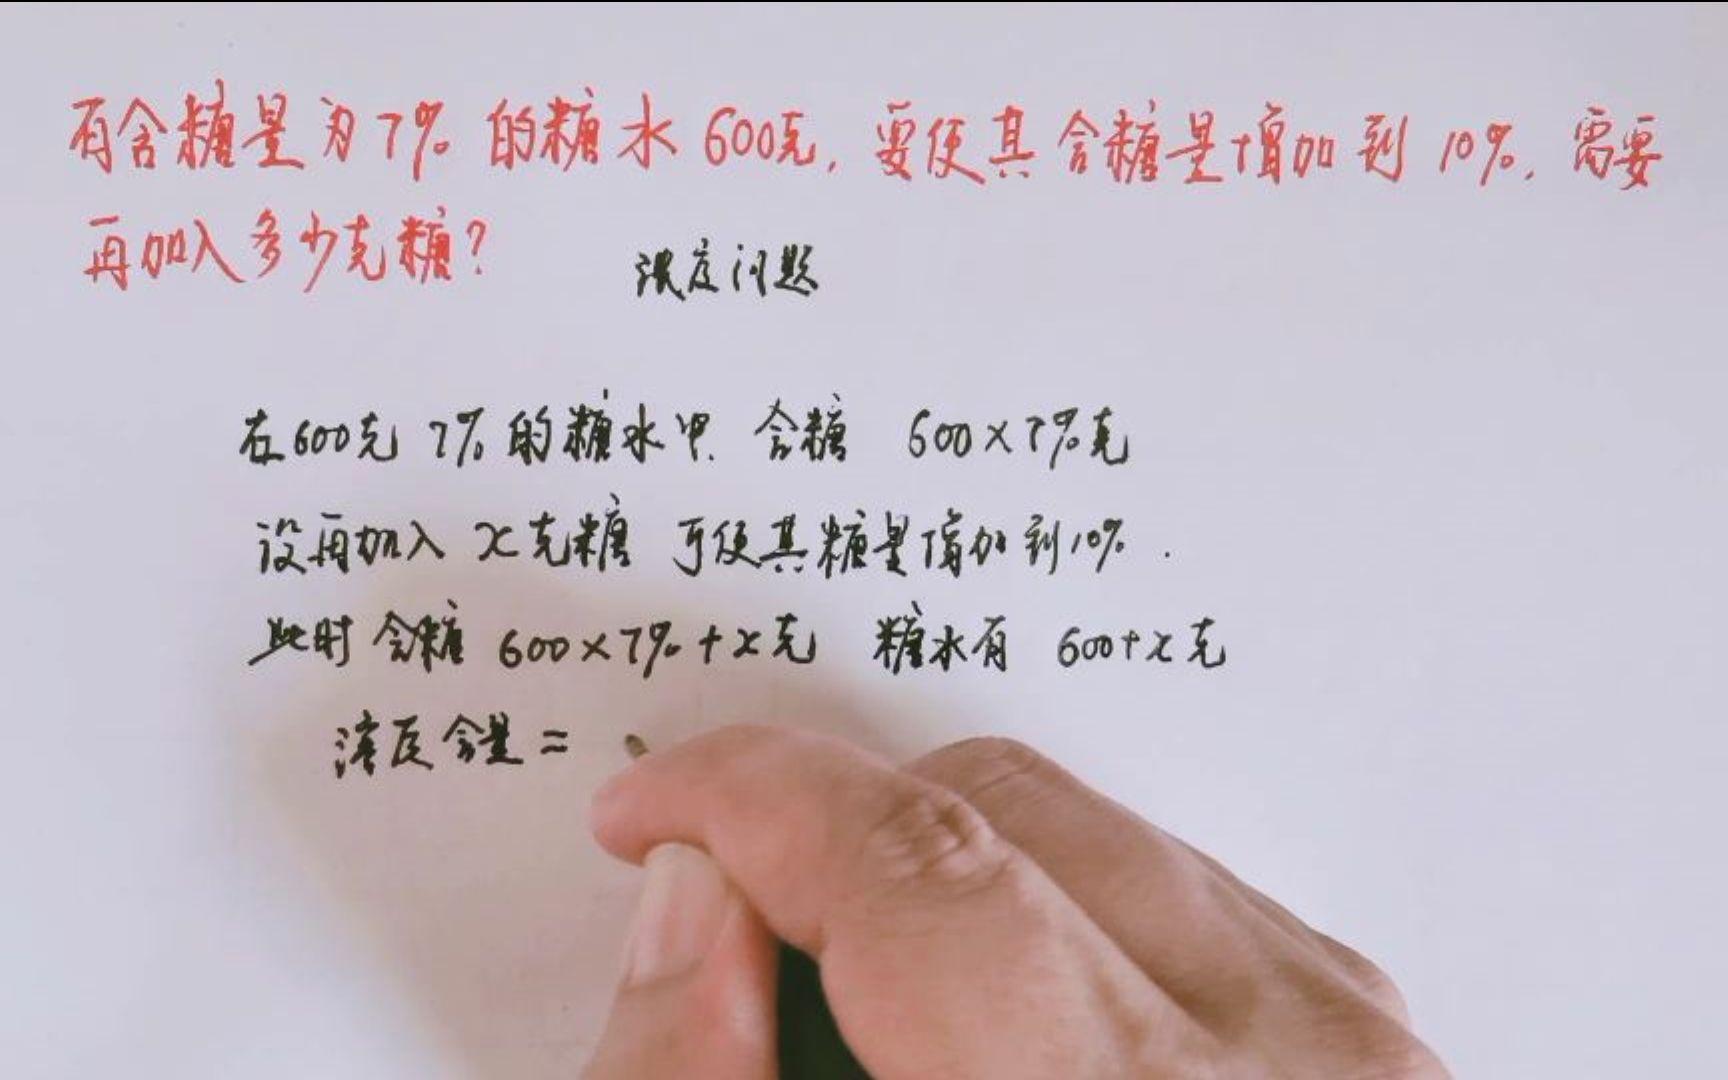 有含糖量为7%的糖水600克,要使其含糖量增加到10%,需要
再加入多少克糖?
浓度问题
在600克7%的糖水中.含糖 600×7%克
设再加入x克糖 可使其糖量增加到10%.
此时含糖600×7%+x克 糖水有 600+x克
含量=